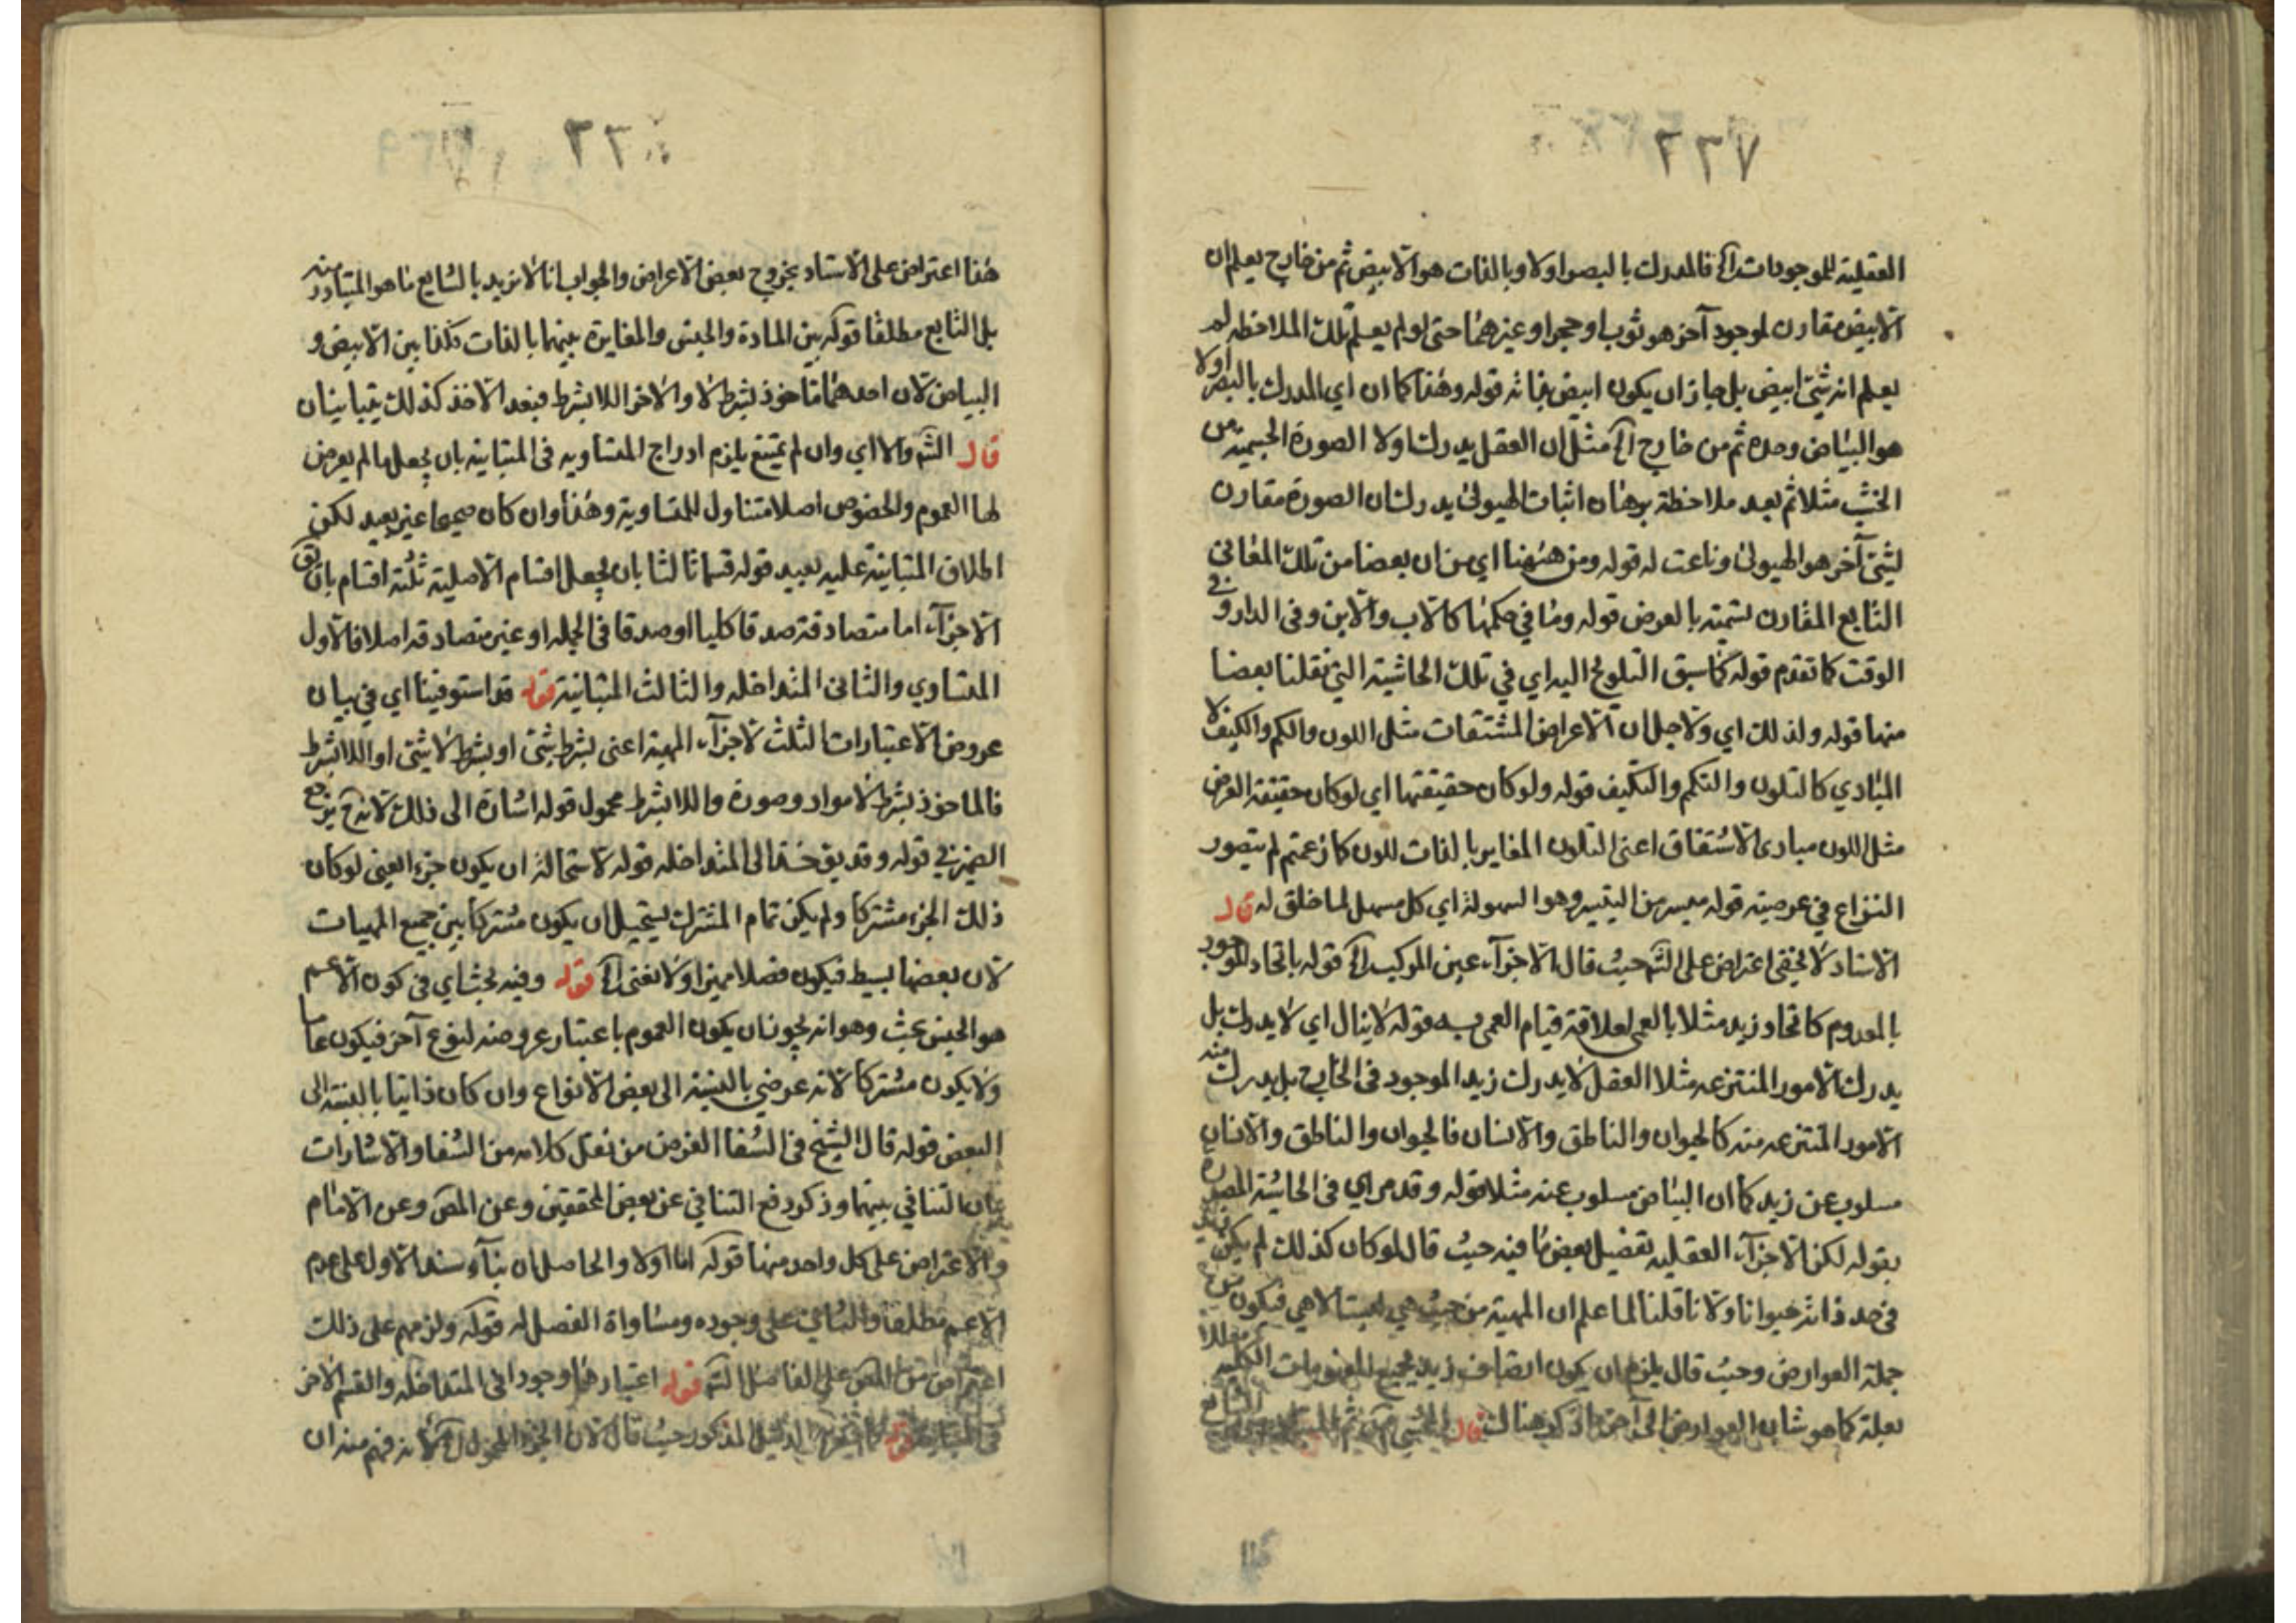 ٢٢٧
العقلية للموجودات الخ فالمدرك بالبصر اولا وبالذات هو الابيض ثم من خارج يعلم ان
الابيض مقارن لموجود آخر هو ثوب او حجر او غيرهما حتى لو لم يعلم تلك الملاحظة لم
يعلم انه شئ ابيض بل جاز ان يكون ابيض بذاته قوله وهذا كما ان اي المدرك بالبصر اولا
هو البياض وحده ثم من خارج الخ مثل ان العقل يدرك اولا الصورة الجسمية من
الخشب مثلا ثم بعد ملاحظة برهان اثبات الهيولى يدرك ان الصورة مقارن
لشئ آخر هو الهيولى وناعت له قوله ومن ههنا اي من ان بعضا من تلك المعانى
التابع المقارن تسميته بالعرض قوله وما في حكمها كالاب والابن وفى الدار وفي
الوقت كما تقدم قوله كما سبق التلويح اليه اي في تلك الحاشية التي نقلنا بعضا
منها قوله ولذلك اي ولاجل ان الاعراض المشتقات مثل اللون والكم والكيف لا
المبادي كالتلون والتكم والتكيف قوله ولو كان حقيقتها اي لو كان حقيقة العرض
مثل اللون مبادى الاشتقاق اعنى التلون المغاير بالذات للون كما زعمتم لم يتصور
النزاع في عرضيته قوله ميسر من التيسير وهو السهولة اي كل مسهل لما خلق له قال
الاستاد لا يخفى اعتراض على الشم حيث قال الاجزآء عين المركب الخ قوله باتحاد الموجود
بالمعدوم كاتحاد زيد مثلا بالعمى لعلاقة قيام العمى به قوله لا ينال اي لا يدرك بل
يدرك الامور المنتزعه مثلا العقل لا يدرك زيدا الموجود فى الخارج بل يدرك منه
الامور المنتزعه منه كالحيوان والناطق والانسان فالحيوان والناطق والانسان
مسلوب عن زيد كما ان البياض مسلوب عنه مثلا قوله وقد مر اي فى الحاشية المصدرة
بقوله لكن الاجزآء العقليه تفصيل بعض ما فيه حيث قال لو كان كذلك لم يكن
فى حد ذاته حيوانا ولا ناقلنا لما علم ان المهية من حيث هي ليست الا هي فيكون
جملة العوارض وحيث قال يلزم ان يكون اتصاف زيد بجميع المفهومات الكليه
بعلة كما هو شان العوارض الى آخر ما ذكر هناك قال
٢٢٨
هذا اعتراض على الاستاد بخروج بعض الاعراض والجواب انا لا نريد بالشايع ما هو المتبادر منه
بل التابع مطلقا قوله بين المادة والجنس والمغايرة بينهما بالذات وكذا بين الابيض و
البياض لان احدهما ماخوذ بشرط لا والاخر اللابشرط فبعد الاخذ كذلك يتباينان
قال الشم والا اي وان لم يمتنع يلزم ادراج المتساويه فى المتباينه بان يجعلها لم يعرض
لها العموم والخصوص اصلا متناول للمتساوية وهذا وان كان صحيحا غير بعيد لكن
اطلاق المتباينة عليه بعيد قوله قسما ثالثا بان يجعل اقسام الاصليه ثلثة اقسام بان يق
الاجزآء اما متصادقة صدقا كليا او صدقا فى الجمله او غير متصادقه اصلا فالاول
المتساوي والثانى المتداخله والثالث المتبانية قوله قد استوفينا اي في بيان
عروض الاعتبارات الثلث لاجزآء المهية اعنى بشرط شئ او بشرط لا شئ او اللابشرط
فالماخوذ بشرط لا مواد وصورة واللابشرط محمول قوله اشارة الى ذلك لانه ح يرجع
الضمير في قوله وقد يق الى المتداخله قوله لاستحالة ان يكون جزء ايعنى لو كان
ذلك الجزء مشتركا ولم يكن تمام المشترك يستحيل ان يكون مشتركا بين جميع المهيات
لان بعضها بسيط فيكون فصلا مميزا ولا نعنى الخ قوله وفيه بحث اي فى كون الاعم
هو الجنس بحث وهو انه يجوز ان يكون العموم باعتبار عروضه لنوع آخر فيكون عاما
ولا يكون مشتركا لانه عرضي بالنسبة الى بعض الانواع وان كان ذاتيا بالنسبة الى
البعض قوله قال الشيخ فى الشفا الغرض من نقل كلامه من الشفا والاشارات
بيان التنافي بينهما وذكر دفع التنافي عن بعض المحققين وعن المص وعن الامام
والاعتراض على كل واحد منها قوله اما اولا والحاصل ان بنآء سند الاول على عدم
الاعم مطلقا والثانى على وجوده ومساواة الفصل له قوله ولزمهم على ذلك
اعتراض من المص على الفاضل الشم قوله اعتبارهما وجودا فى المتداخله والقسم الاخر
فى المتباينه قوله الدليل المذكور حيث قال لان الجزء المحمول الخ لانه فهم منه ان